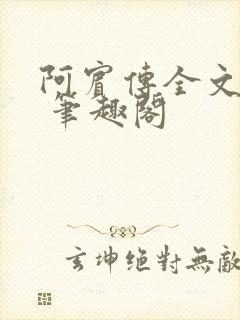 阿賓傳全文
筆趣閣
玄坤絕對無敵